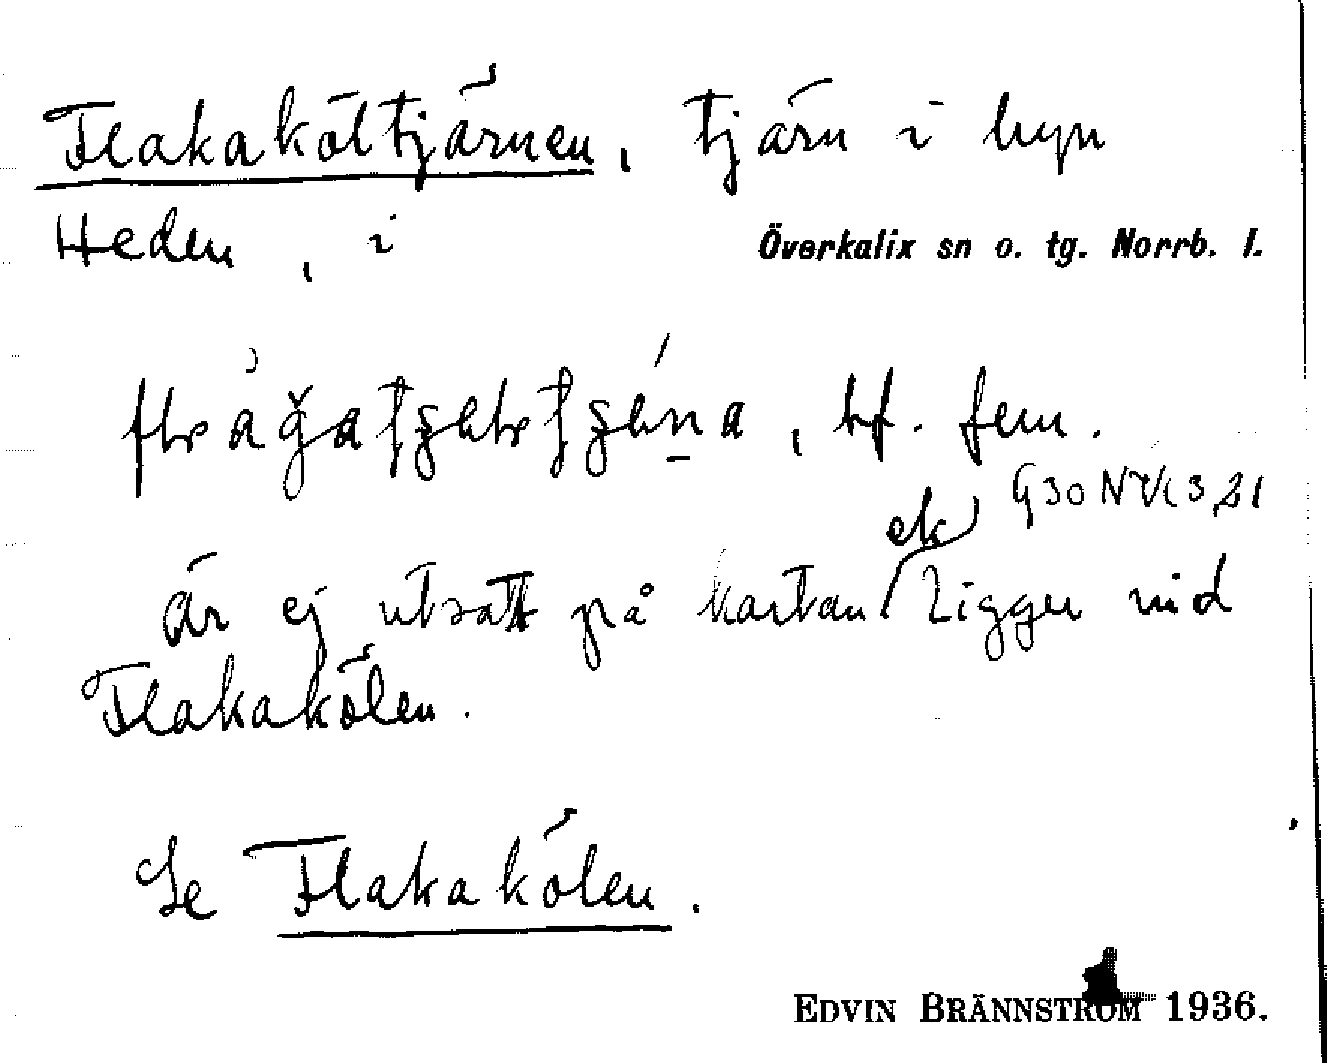 Flakaköltjärnen, tjärn i byn
Heden, i Överkalix sn o. tg. Norrb. l.
, bf. fem.
ek G30 NV(3,21
är ej utsatt på kartan Ligger vid
Flakakölen.
Se Flakakölen.
EDVIN BRÄNNSTRÖM 1936.